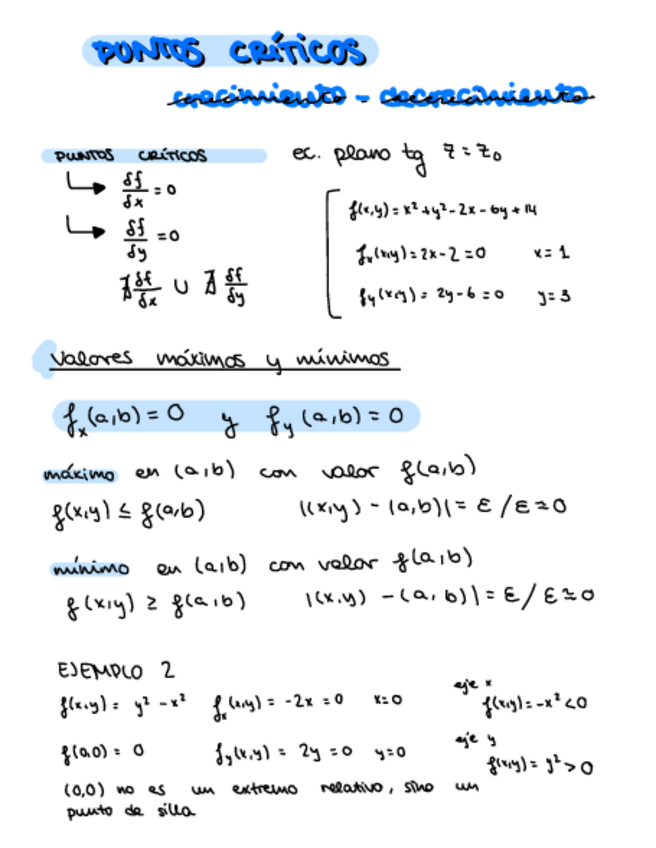 PUNTOS CRÍTICOS
crecimiento - decrecimiento
PUNTOS CRÍTICOS
ec. plano tg z = z₀
δf/δx = 0
δf/δy = 0
∄ δf/δx ∪ ∄ δf/δy
f(x,y) = x² + y² - 2x - 6y + 14
fₓ(x,y) = 2x - 2 = 0 x = 1
f_y(x,y) = 2y - 6 = 0 y = 3
Valores máximos y mínimos
fₓ(a,b) = 0 y f_y(a,b) = 0
máximo en (a,b) con valor f(a,b)
f(x,y) ≤ f(a,b) |(x,y) - (a,b)| = ε / ε ≃ 0
mínimo en (a,b) con valor f(a,b)
f(x,y) ≥ f(a,b) |(x,y) - (a,b)| = ε / ε ≃ 0
EJEMPLO 2
f(x,y) = y² - x² fₓ(x,y) = -2x = 0 x=0
eje x
f(x,y) = -x² < 0
f(0,0) = 0 f_y(x,y) = 2y = 0 y=0
eje y
f(x,y) = y² > 0
(0,0) no es un extremo relativo, sino un
punto de silla